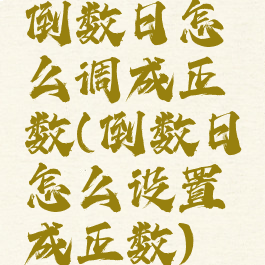 倒数日怎
么调成正
数(倒数日
怎么设置
成正数)